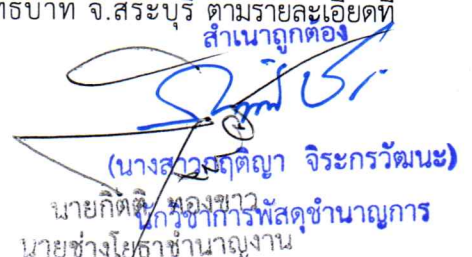 ธบาท จ.สระบุรี ตามรายละเอียดที่
สำเนาถูกต้อง
(นางสาวกฤติญา จิระกรวัฒนะ)
นักวิชาการพัสดุชำนาญการ
นายกิตติ ทองขาว
นายช่างโยธาชำนาญงาน